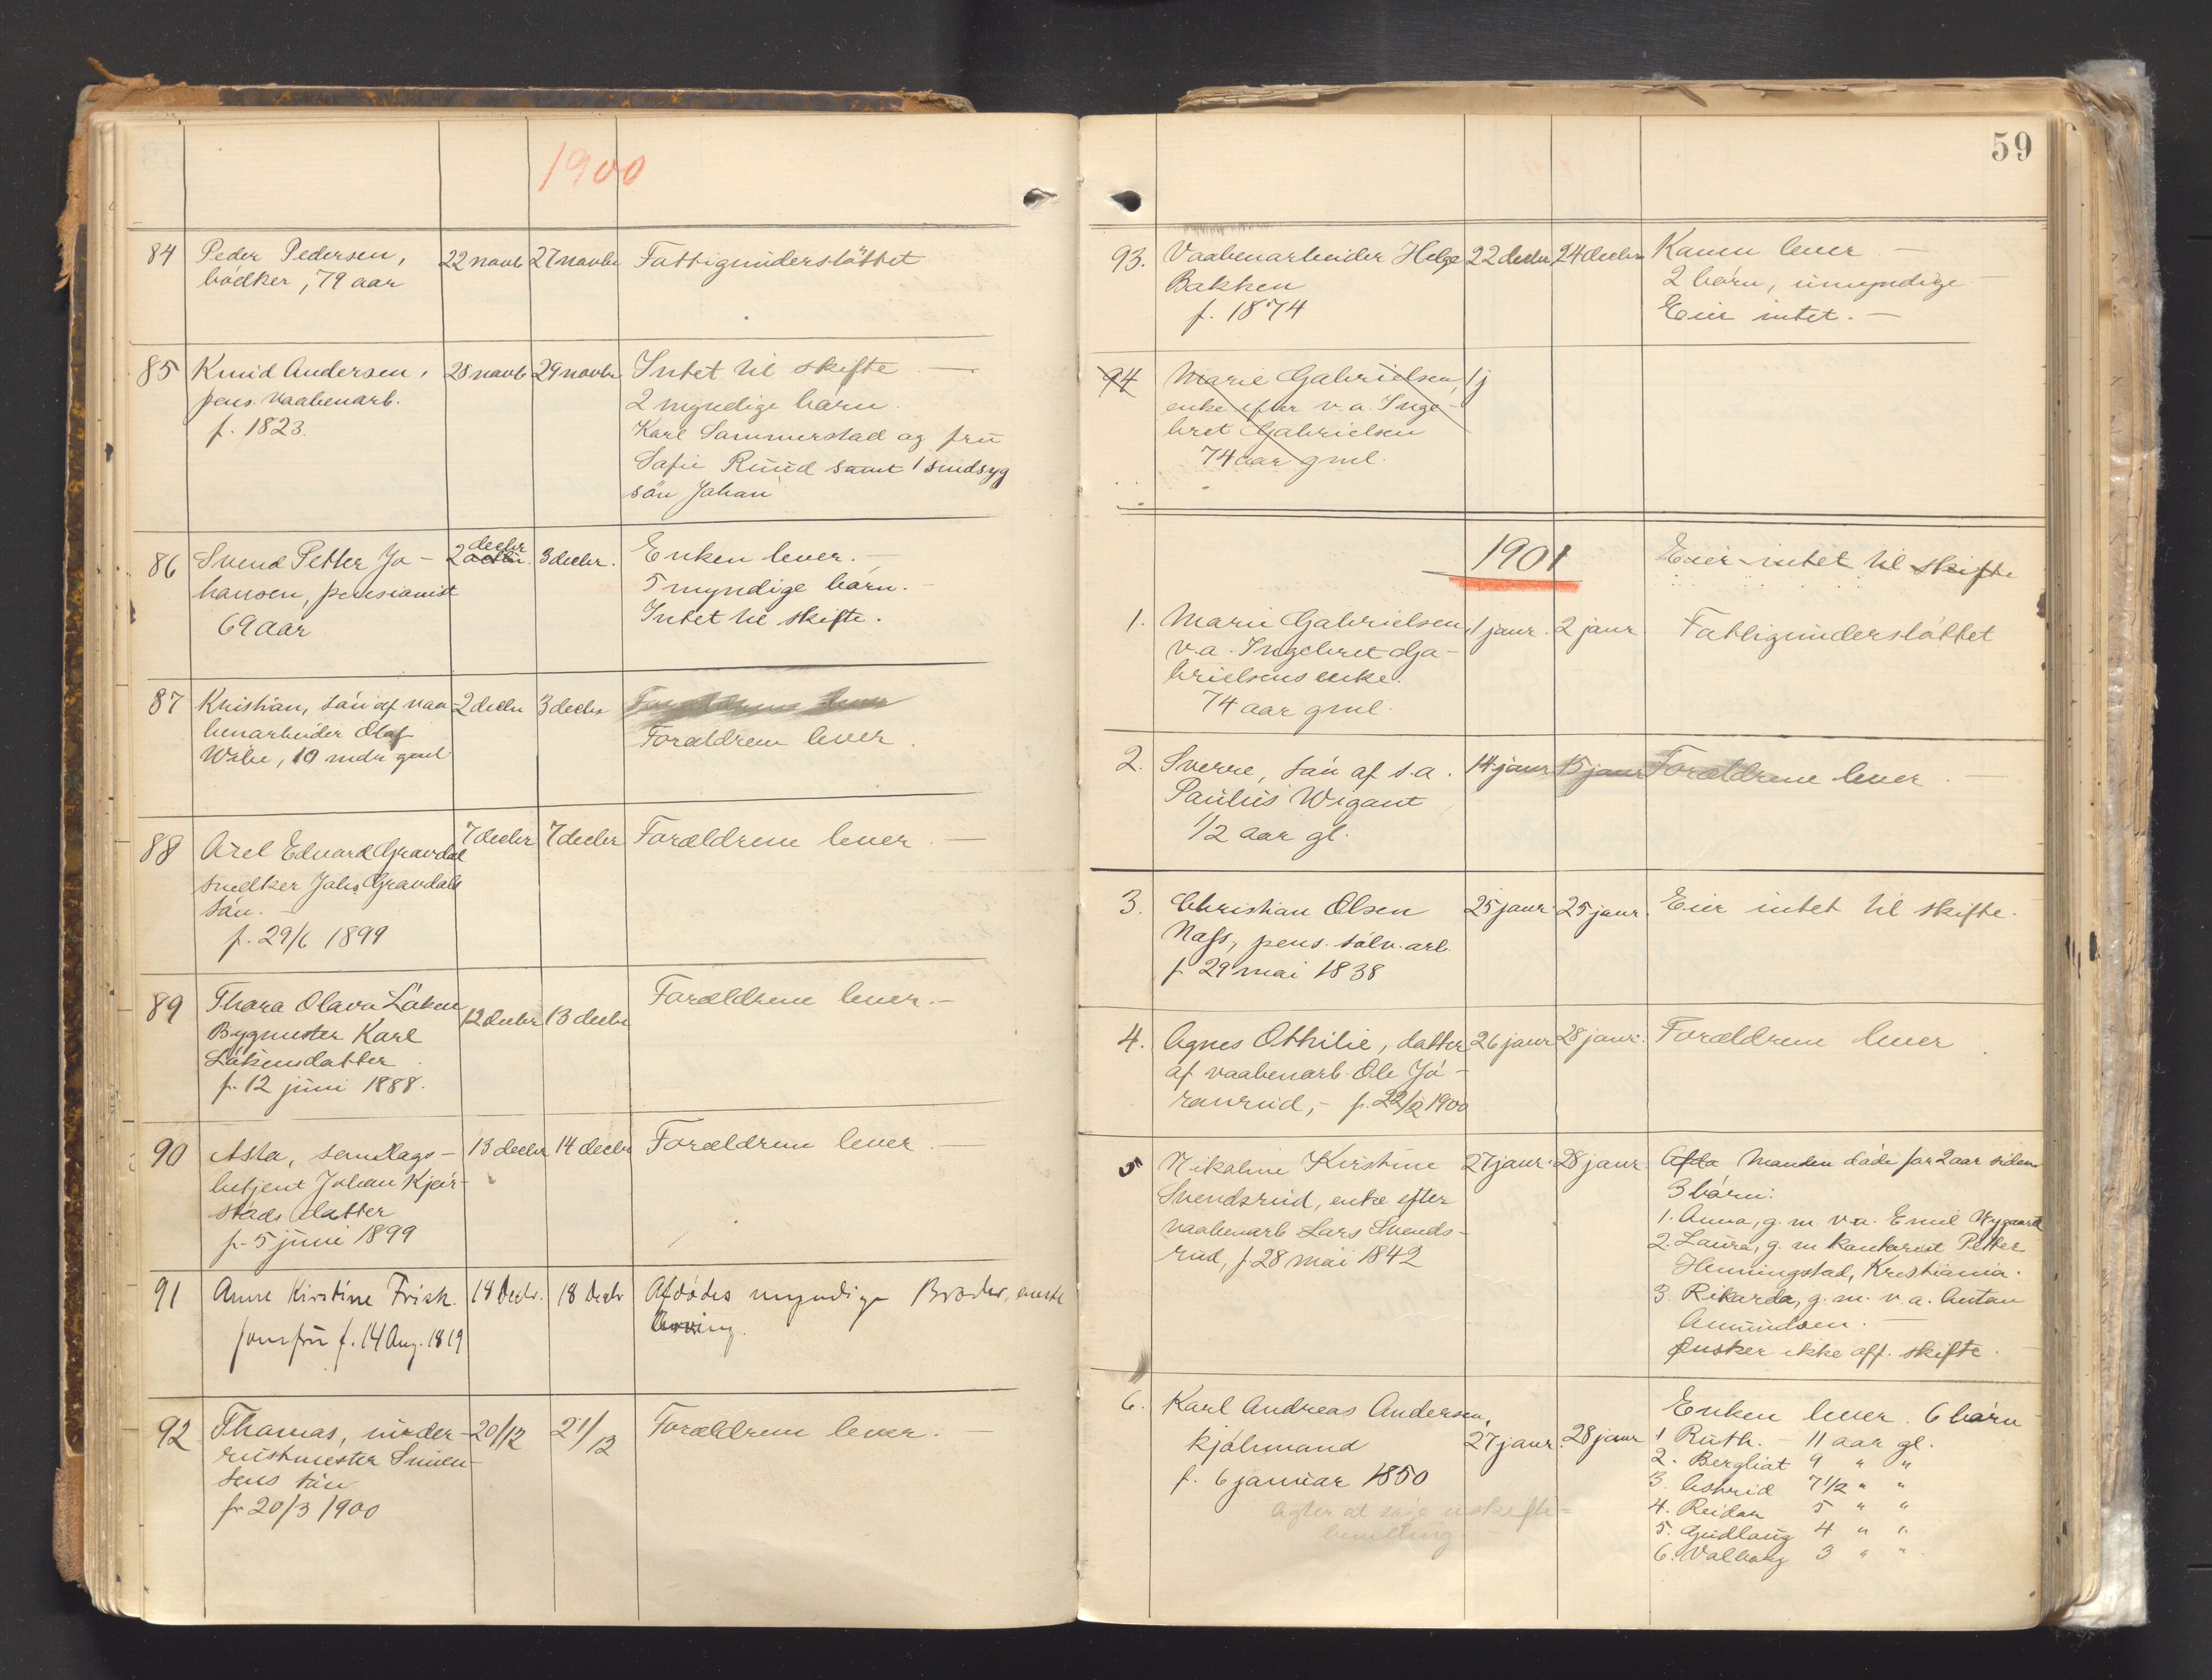 1900
84 Peder Pedersen, 22 novb 27 novbr Fattigunderstøttet
bødker, 79 aar
85 Knud Andersen, 28 novb 29 novbr Intet til skifte. —
pens. vaabenarb. 2 myndige børn.
f. 1823. Karl Sammerstad og fru
Sofie Ruud samt 1 sindsyg
søn Johan
86 Svend Petter Jo- 2 decbr 3 decbr. Enken lever. —
hansen, pensionist 5 myndige børn. —
69 aar Intet til skifte.
87 Kristian, søn af vaa- 2 decbr 3 decbr
benarbeider Olaf Forældrene lever.
Wibe, 10 mdr gml
88 Axel Edvard Gravdal 7 decbr 7 decbr Forældrene lever. —
snedker Johs Gravdals
søn. —
f. 29/6 1899
89 Thora Olava Løken 12 decbr 13 decbr Forældrene lever. —
Bygmester Karl
Løkens datter
f. 12 juni 1888.
90 Asta, 13 decbr 14 decbr Forældrene lever —
betjent Johan Kjør-
stads datter
f. 5 juni 1899
91 Anne Kirstine Frish. 18 Decbr. 18 Decbr Afdødes myndige Broder, eneste
jomfru f. 14 Aug. 1819 Arving.
92 Thomas, under- 20/12 21/12 Forældrene lever. —
rustmester Simen-
sens søn
f. 20/3 1900
59
93. Vaabenarbeider Helge 22 decbr 24 decbr Konen lever —
Bakken 2 børn, umyndige —
f. 1874 Eier intet. —
94 Marie Gabrielsen, 1 j
enke efter v.a. Inge-
bret Gabrielsen
74 aar gml.
1901 Eier intet til skifte
1. Marie Gabrielsen, 1 janr. 2 janr Fattigunderstøttet
v.a. Ingebret Ga-
brielsens enke.
74 aar gml.
2. Sverre, søn af s.a. 14 janr 15 janr Forældrene lever. —
Paulus Wigant
1/2 aar gl.
3. Christian Olsen 25 janr. 25 janr. Eier intet til skifte.
Næss, pens. sølv.arb.
f 29 mai 1838
4. Agnes Othilie, datter 26 janr 28 janr. Forældrene lever.
af vaabenarb. Ole Jø-
ranrud, — f. 22/2 1900
5 Nikoline Kirstine 27 janr. 28 janr. Afdø Manden døde for 2 aar siden
Svendsrud, enke efter 3 børn:
vaabenarb Lars Svends- 1. Anna, g. m. v.a. Emil Nygaard
rud, f. 28 mai 1842 2. Laura, g. m. kontorist Petter
Henningstad, Kristiania.
3. Rikarda, g. m. v. a. Anton
Amundsen. —
Ønsker ikke off. skifte.
6. Karl Andreas Andersen, 27 janr. 28 janr Enken lever. 6 børn
kjøbmand 1 Ruth. — 11 aar gl.
f. 6 januar 1850 2. Bergliot 9 " "
Agter at søge uskifte- 3. Astrid 7 1/2 " "
bevilling 4. Reidar 5 " "
5. Gudlaug 4 " "
6. Valborg 3 " "